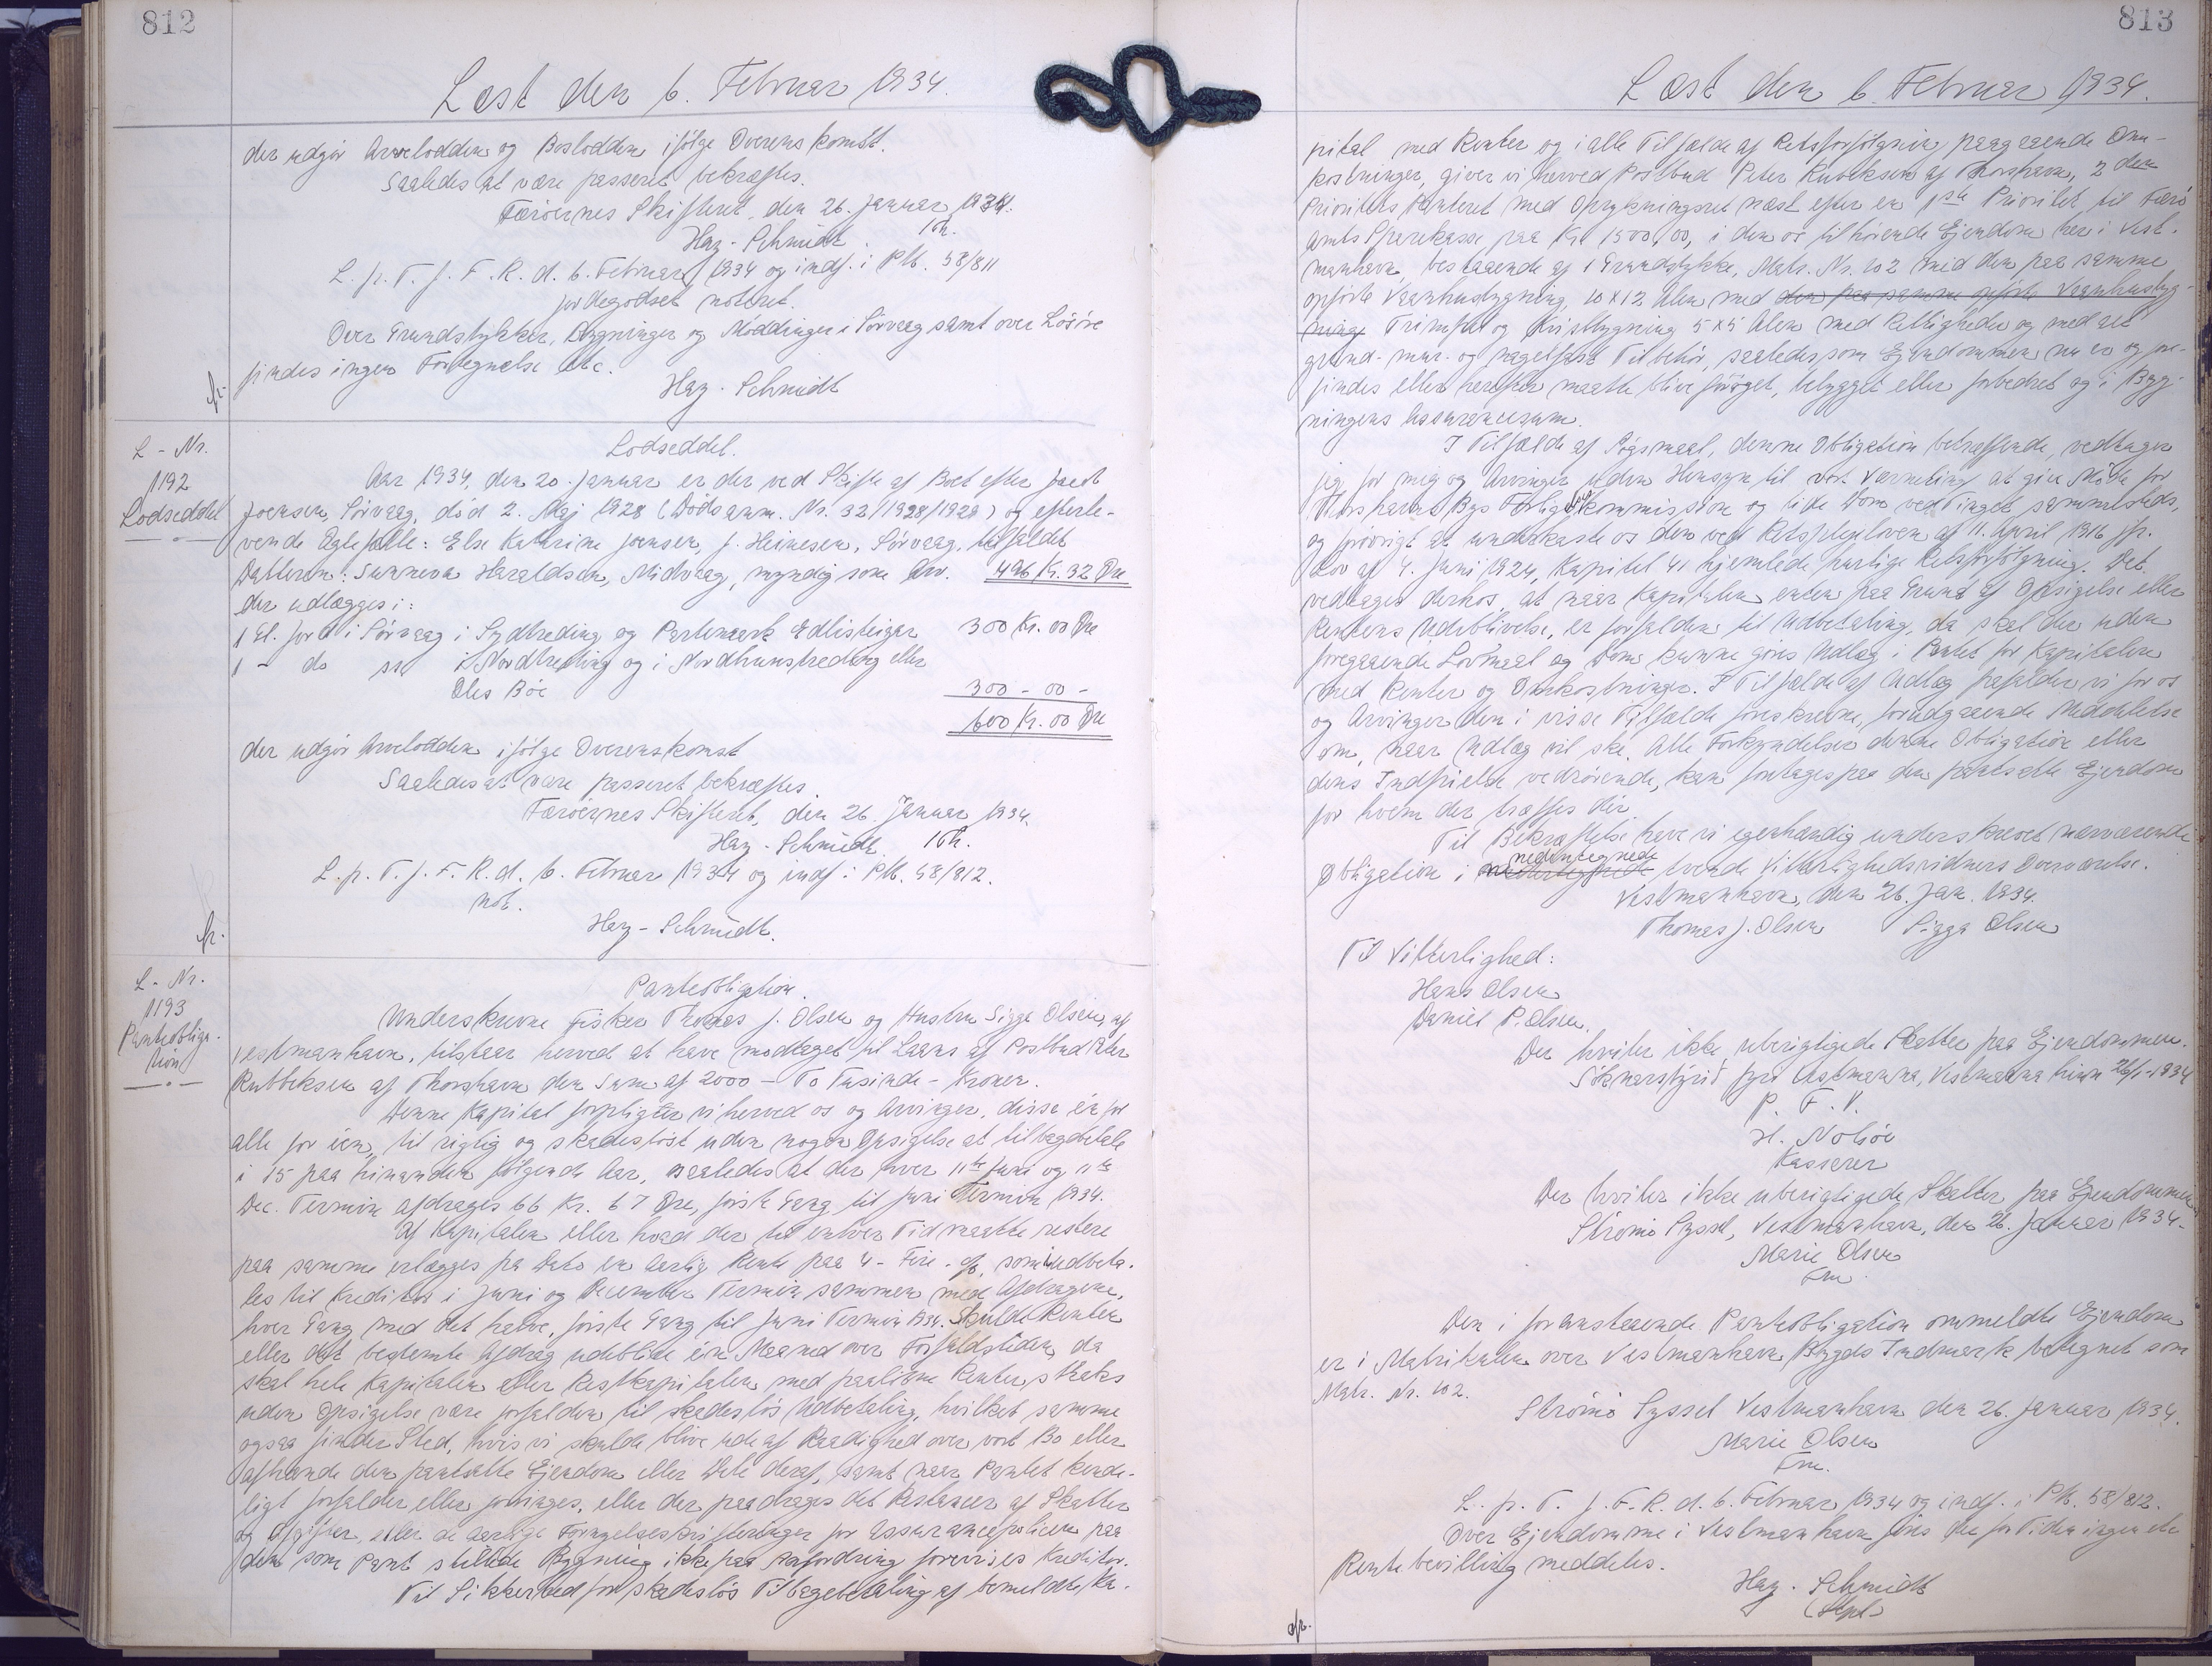 812
Læst den 6. Februar 1934.
der udgör Arvelodden og Boslodden ifölge Overenskomst.
Saaledes at være passeret bekræftes.
Færöernes Skifteret, den 26. Januar 1934.
Hay-Schmidt.
L. p. T. f. F. R. d. 6. Februar 1934 og indf. i Pb. 58/811
Jordegodset noteret.
Over Grundstykker, Bygninger og Möddinger i Sörvaag samt over Lösöre
findes ingen Fortegnelse etc.
Hay-Schmidt
L-Nr.
1192
Lodseddel
Lodseddel.
Aar 1934, den 20. Januar er der ved Skifte af Boet efter Jacob
Joensen, Sörvaag, död 2. Maj 1928 (Dödsanm. Nr. 32/1928/1929) og efterle-
vende Ægtefælle: Else Kathrine Joensen, f. Heinesen, Sörvaag, tilfaldt
Datteren: Sunneva Haraldsen, Midvaag, myndig som Arv. 496 Kr. 32 Öre
der udlægges i:
1 Gl. Jord i Sörvaag i Sydtreding og Partemark Edlisteigar 300 Kr. 00 Öre
1 - do sa i Nordtreding og i Nordtunstreding eller
Oles Böe 300 - 00 -
600 Kr. 00 Öre
der udgör Arvelodden ifölge Overenskomst
Saaledes at være passeret bekræftes.
Færöernes Skifteret, den 26. Januar 1934.
Hay-Schmidt.
L. p. T. f. F. R. d. 6. Februar 1934 og indf. i Pb. 58/812.
not.
Hay-Schmidt.
L-Nr.
1193
Pantobliga-
tion
Pantobligation.
Underskrevne Fisker Thomas J. Olsen og Hustru Sigga Olsen, af
Vestmanhavn, tilstaar herved at have modtaget til Laans af Postbud Peter
Rubbeksen af Thorshavn den Sum af 2000 - To Tusinde - Kroner.
Denne Kapital forpligter vi herved os og Arvinger, disse én for
alle for een, til rigtig og skadeslöst uden nogen Opsigelse at tilbagebetale
i 15 paa hinanden fölgende Aar, saaledes at der hver 11te Juni og 11te
Dec. Termin afdrages 66 Kr. 67 Öre, förste Gang til Juni Termin 1934.
Af Kapitalen eller hvad der til enhver Tid maatte restere
paa samme erlægges fra Dato en aarlig Rente paa 4 - Fire - %, som indbeta-
les til Kreditor i Juni og December Termin sammen med Afdragene,
hver Gang med det halve, förste Gang til Juni Termin 1934. Skulde Renten
eller det bestemte Afdrag udeblive én Maaned over Forfaldstiden, da
skal hele Kapitalen eller Restkapitalen med paalöbne Renter straks
uden Opsigelse være forfalden til skadeslös Udbetaling, hvilket samme
ogsaa finder Sted, hvis vi skulde blive ude af Raadighed over vort Bo eller
afhænde den pantsatte Ejendom eller Dele deraf, samt naar Pantet kende-
ligt forfalder eller forringes, eller der paadrages det Restancer af Skatter
og Afgifter, eller de aarlige Fornyelseskvitteringer for Assurancepolicen paa
den som Pant stillede Bygning ikke paa Anfordring forevises Kreditor.
Til Sikkerhed for skadeslös Tilbagebetaling af bemeldte Ka-
813
Læst den 6. Februar 1934.
pital med Renter og i alle Tilfælde af Retsforfölgning paagaaende Om-
kostninger, giver vi herved Postbud Peter Rubeksen af Thorshavn, 2den
Prioritets Panteret med Oprykningsret næst efter en 1ste Prioritet til Færö
Amts Sparekasse paa Kr. 1500,00, i den os tilhörende Ejendom her i Vest-
manhavn, bestaaende af 1 Grundstykke, Matr. Nr. 102 med den paa samme
opförte Vaaningsbygning 10 x 12 Alen med den paa samme opförte Vaaningsbyg-
ning Trimpul og Kvistbygning 5 x 5 Alen med Rettigheder og med alt
grund- mur- og nagelfast Tilbehör, saaledes som Ejendommen nu er og fore-
findes eller herefter maatte blive forøget, bebygget eller forbedret og i Byg-
ningens Assurancesum.
I Tilfælde af Sögsmaal, denne Obligation betræffende, vedtager
jeg for mig og Arvinger uden Hensyn til vort Værneting at give Möde for
Thorshavns Bys Forligskommission og lide Dom ved Tinget sammesteds,
og iövrigt at underkaste os den ved Retsplejeloven af 11. April 1916 jfr.
Lov af 4. Juni 1924, Kapitel 41 hjemlede hurtige Retsforfölgning. Det
vedtages derhos, at naar Kapitalen enten paa Grund af Opsigelse eller
Rentens Udeblivelse, er forfalden til Udbetaling, da skal der uden
foregaaende Lovmaal og Dom kunne göres Udlæg i Pantet for Kapitalen
med Renter og Omkostninger. I Tilfælde af Udlæg frafalder vi for os
og Arvinger den i visse Tilfælde foreskrevne, forudgaaende Meddelelse
om, naar Udlæg vil ske. Alle Forkyndelser denne Obligation eller
dens Indfrielse vedrörende, kan foretages paa den pantsatte Ejendom
for hvem der træffes dér.
Til Bekræftelse have vi egenhændig underskrevet nærværende
Obligation i nedentegnede tvende Vitterlighedsvidners Overværelse.
Vestmanhavn, den 26. Jan. 1934.
Thomas J. Olsen Sigga Olsen
Til Vitterlighed:
Hans Olsen
Daniel P. Olsen.
Der hviler ikke uberigtigede Skatter paa Ejendommen.
Söknarstýrið fyri Vestmanna, Vestmanna hinn 26/1-1934
P. F. V.
H. Nolsöe
Kasserer
Der hviler ikke uberigtigede Skatter paa Ejendommen
Strömö Syssel, Vestmanhavn, den 26. Januar 1934.
Marie Olsen
Fm.
Den i foranstaaende Pantobligation ommeldte Ejendom
er i Matrikulen over Vestmanhavn Bygds Indmark betegnet som
Matr. Nr. 102.
Strömö Syssel Vestmanhavn den 26. Januar 1934.
Marie Olsen
Fm.
L. p. T. f. F. R. d. 6. Februar 1934 og indf. i Pb. 58/812.
Over Ejendomme i Vestmanhavn föres der for Tiden ingen etc
Rentebevilling meddeles.
Hay-Schmidt